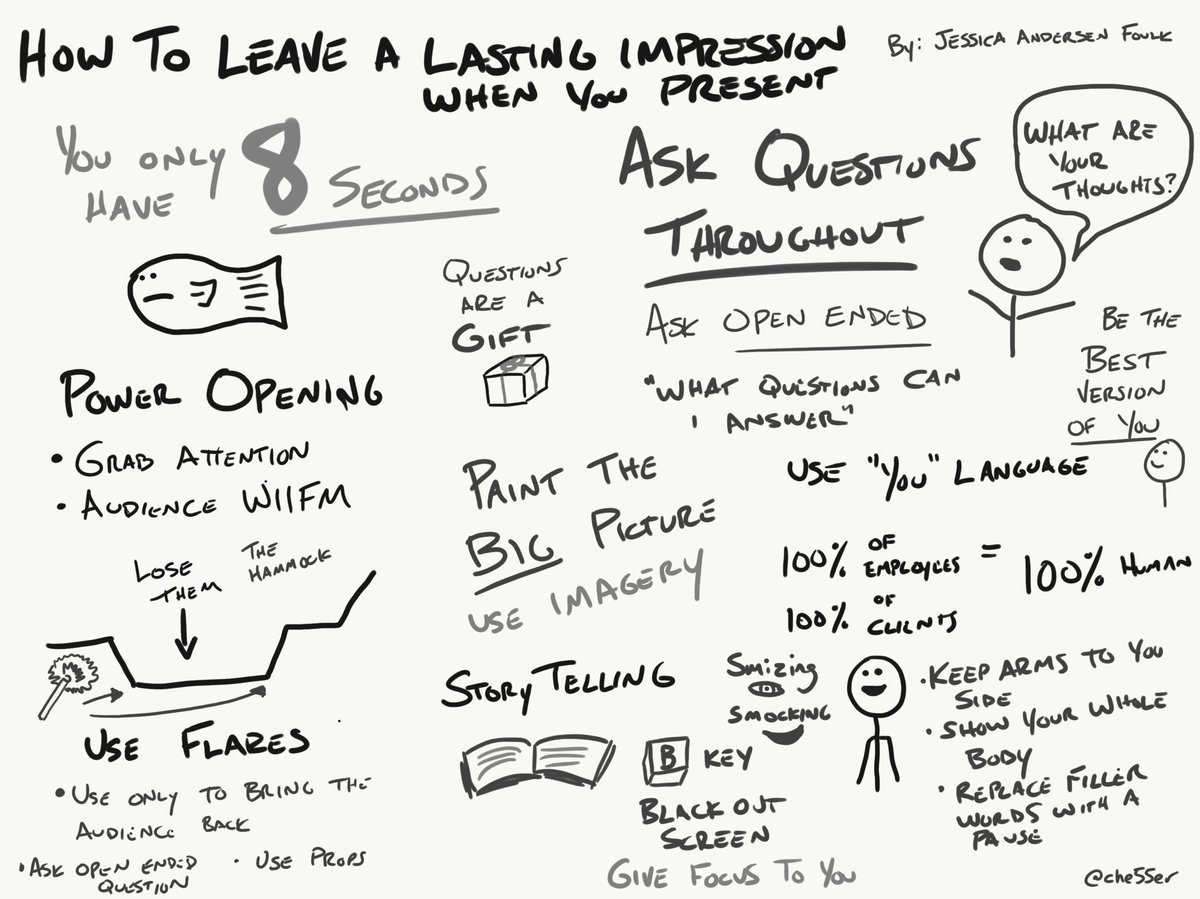 HOW TO LEAVE A LASTING IMPRESSION
WHEN YOU PRESENT
By: JESSICA ANDERSEN FOULK
YOU ONLY
HAVE
8 SECONDS
POWER OPENING
• GRAB ATTENTION
• AUDIENCE WIIFM
LOSE
THEM
THE
HAMMOCK
USE FLARES
• USE ONLY TO BRING THE
AUDIENCE BACK
• ASK OPEN ENDED
QUESTION
• USE PROPS
QUESTIONS
ARE A
GIFT
ASK QUESTIONS
THROUGHOUT
ASK OPEN ENDED
"WHAT QUESTIONS CAN
I ANSWER"
WHAT ARE
YOUR
THOUGHTS?
BE THE
BEST
VERSION
OF YOU
PAINT THE
BIG PICTURE
USE IMAGERY
USE "YOU" LANGUAGE
100% OF
EMPLOYEES
= 100% HUMAN
100% OF
CLIENTS
STORY TELLING
SMIZING
SMOCKING
B KEY
BLACK OUT
SCREEN
GIVE FOCUS TO YOU
• KEEP ARMS TO YOU
SIDE
• SHOW YOUR WHOLE
BODY
• REPLACE FILLER
WORDS WITH A
PAUSE
@che55er